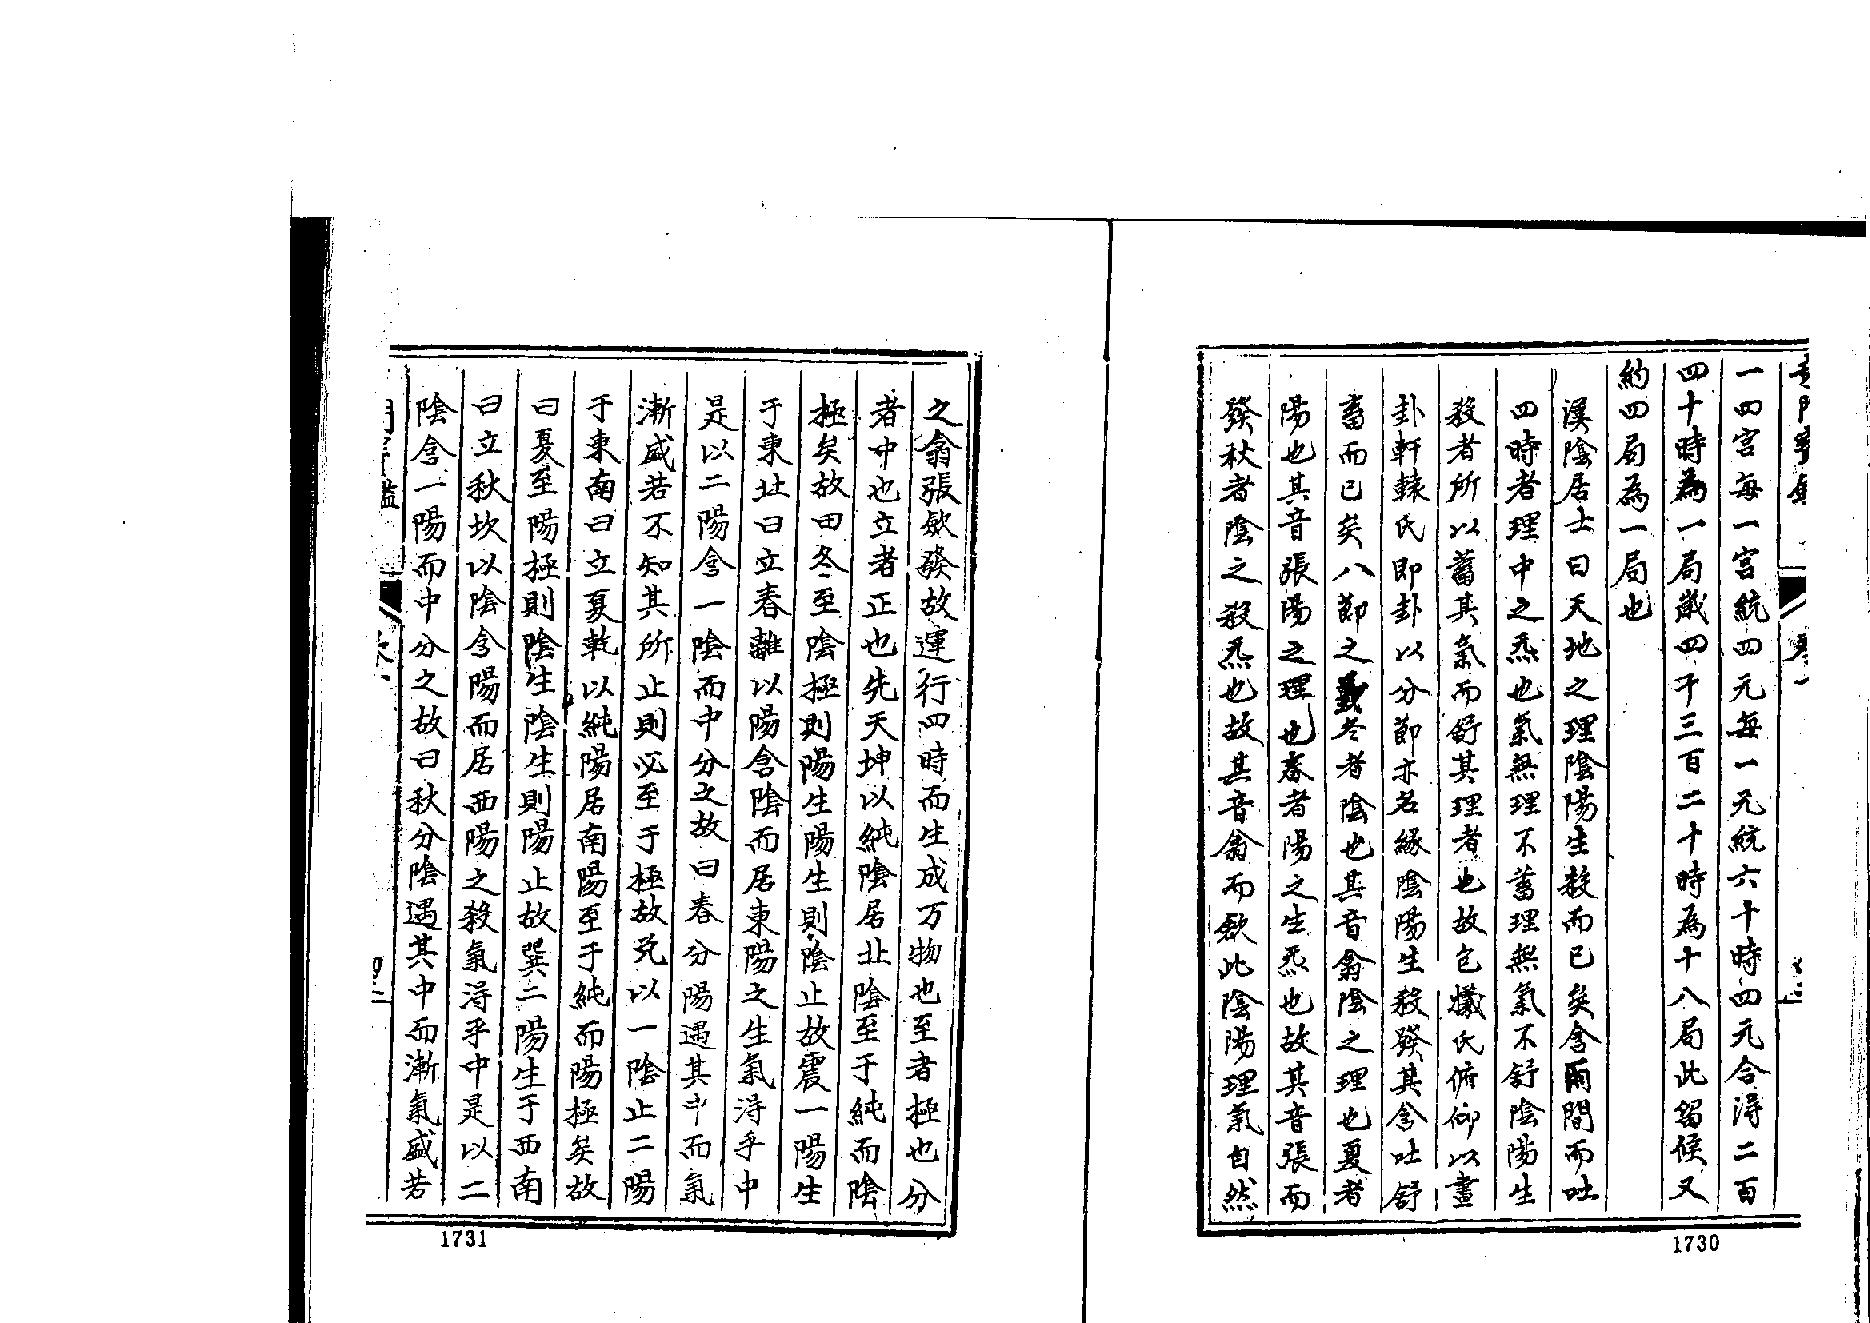 一四宮每一宮統四元每一元統六十時四元合得二百
四十時為一局歲四千三百二十時為十八局此留候又
約四局為一局也
漢陰居士曰天地之理陰陽生殺而已矣含兩間而吐
四時者理中之炁也氣無理不蓄理無氣不舒陰陽生
殺者所以蓄其氣而舒其理者也故包犧氏俯仰以畫
卦軒轅氏即卦以分節亦名緣陰陽生殺發其含吐舒
畜而已矣八節之義冬者陰也其音翕陰之理也夏者
陽也其音張陽之理也春者陽之生炁也故其音張而
發秋者陰之殺炁也故其音翕而歛此陰陽理氣自然
1730
之翕張歛發故運行四時而生成万物也至者極也分
者中也立者正也先天坤以純陰居北陰至于純而陰
極矣故曰冬至陰極則陽生陽生則陰止故震一陽生
于東北曰立春離以陽含陰而居東陽之生氣淂乎中
是以二陽含一陰而中分之故曰春分陽遇其中而氣
漸盛若不知其所止則必至于極故兌以一陰止二陽
于東南曰立夏乾以純陽居南陽至于純而陽極矣故
曰夏至陽極則陰生陰生則陽止故巽二陽生于西南
曰立秋坎以陰含陽而居西陽之殺氣淂乎中是以二
陰含一陽而中分之故曰秋分陰遇其中而漸氣盛若
1731